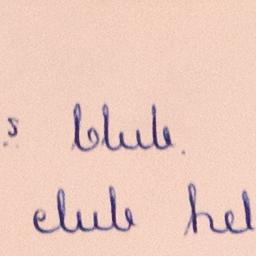 s blub.
club hel